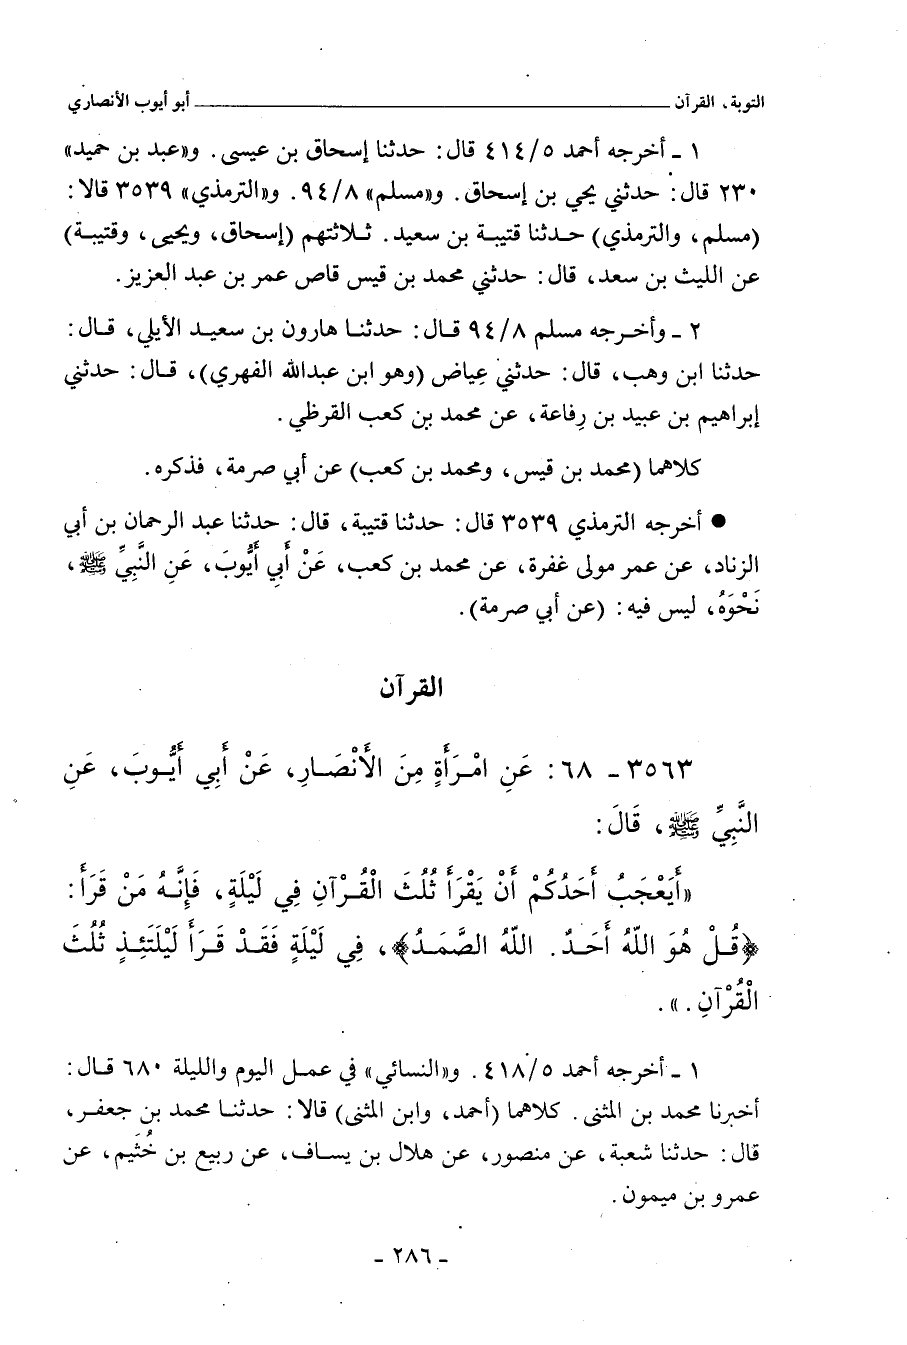 التوبة، القرآن ـــــــــــــــــــــ أبو أيوب الأنصاري
١ ـ أخرجه أحمد ٤١٤/٥ قال: حدثنا إسحاق بن عيسى. و«عبد بن حميد»
٢٣٠ قال: حدثني يحي بن إسحاق. و«مسلم» ٩٤/٨. و«الترمذي» ٣٥٣٩ قالا:
(مسلم، والترمذي) حدثنا قتيبة بن سعيد. ثلاثتهم (إسحاق، ويحيى، وقتيبة)
عن الليث بن سعد، قال: حدثني محمد بن قيس قاص عمر بن عبد العزيز.
٢ ـ وأخرجه مسلم ٩٤/٨ قال: حدثنا هارون بن سعيد الأيلي، قال:
حدثنا ابن وهب، قال: حدثني عِياض (وهو ابن عبدالله الفهري)، قال: حدثني
إبراهيم بن عبيد بن رِفاعة، عن محمد بن كعب القرظي.
كلاهما (محمد بن قيس، ومحمد بن كعب) عن أبي صرمة، فذكره.
● أخرجه الترمذي ٣٥٣٩ قال: حدثنا قتيبة، قال: حدثنا عبد الرحمان بن أبي
الزناد، عن عمر مولى غفرة، عن محمد بن كعب، عَنْ أَبِي أَيُّوبَ، عَنِ النَّبِيِّ ﷺ،
نَحْوَهُ، ليس فيه: (عن أبي صرمة).
القرآن
٣٥٦٣ ـ ٦٨: عَنِ امْرَأَةٍ مِنَ الأَنْصَارِ، عَنْ أَبِي أَيُّوبَ، عَنِ
النَّبِيِّ ﷺ، قَالَ:
«أَيَعْجَبُ أَحَدُكُمْ أَنْ يَقْرَأَ ثُلُثَ الْقُرْآنِ فِي لَيْلَةٍ، فَإِنَّهُ مَنْ قَرَأَ:
﴿قُلْ هُوَ اللّهُ أَحَدٌ. اللّهُ الصَّمَدُ﴾، فِي لَيْلَةٍ فَقَدْ قَرَأَ لَيْلَتَئِذٍ ثُلُثَ
الْقُرْآنِ.».
١ ـ أخرجه أحمد ٤١٨/٥. و«النسائي» في عمل اليوم والليلة ٦٨٠ قال:
أخبرنا محمد بن المثنى. كلاهما (أحمد، وابن المثنى) قالا: حدثنا محمد بن جعفر،
قال: حدثنا شعبة، عن منصور، عن هلال بن يساف، عن ربيع بن خُثَيم، عن
عمرو بن ميمون.
ـ ٢٨٦ ـ